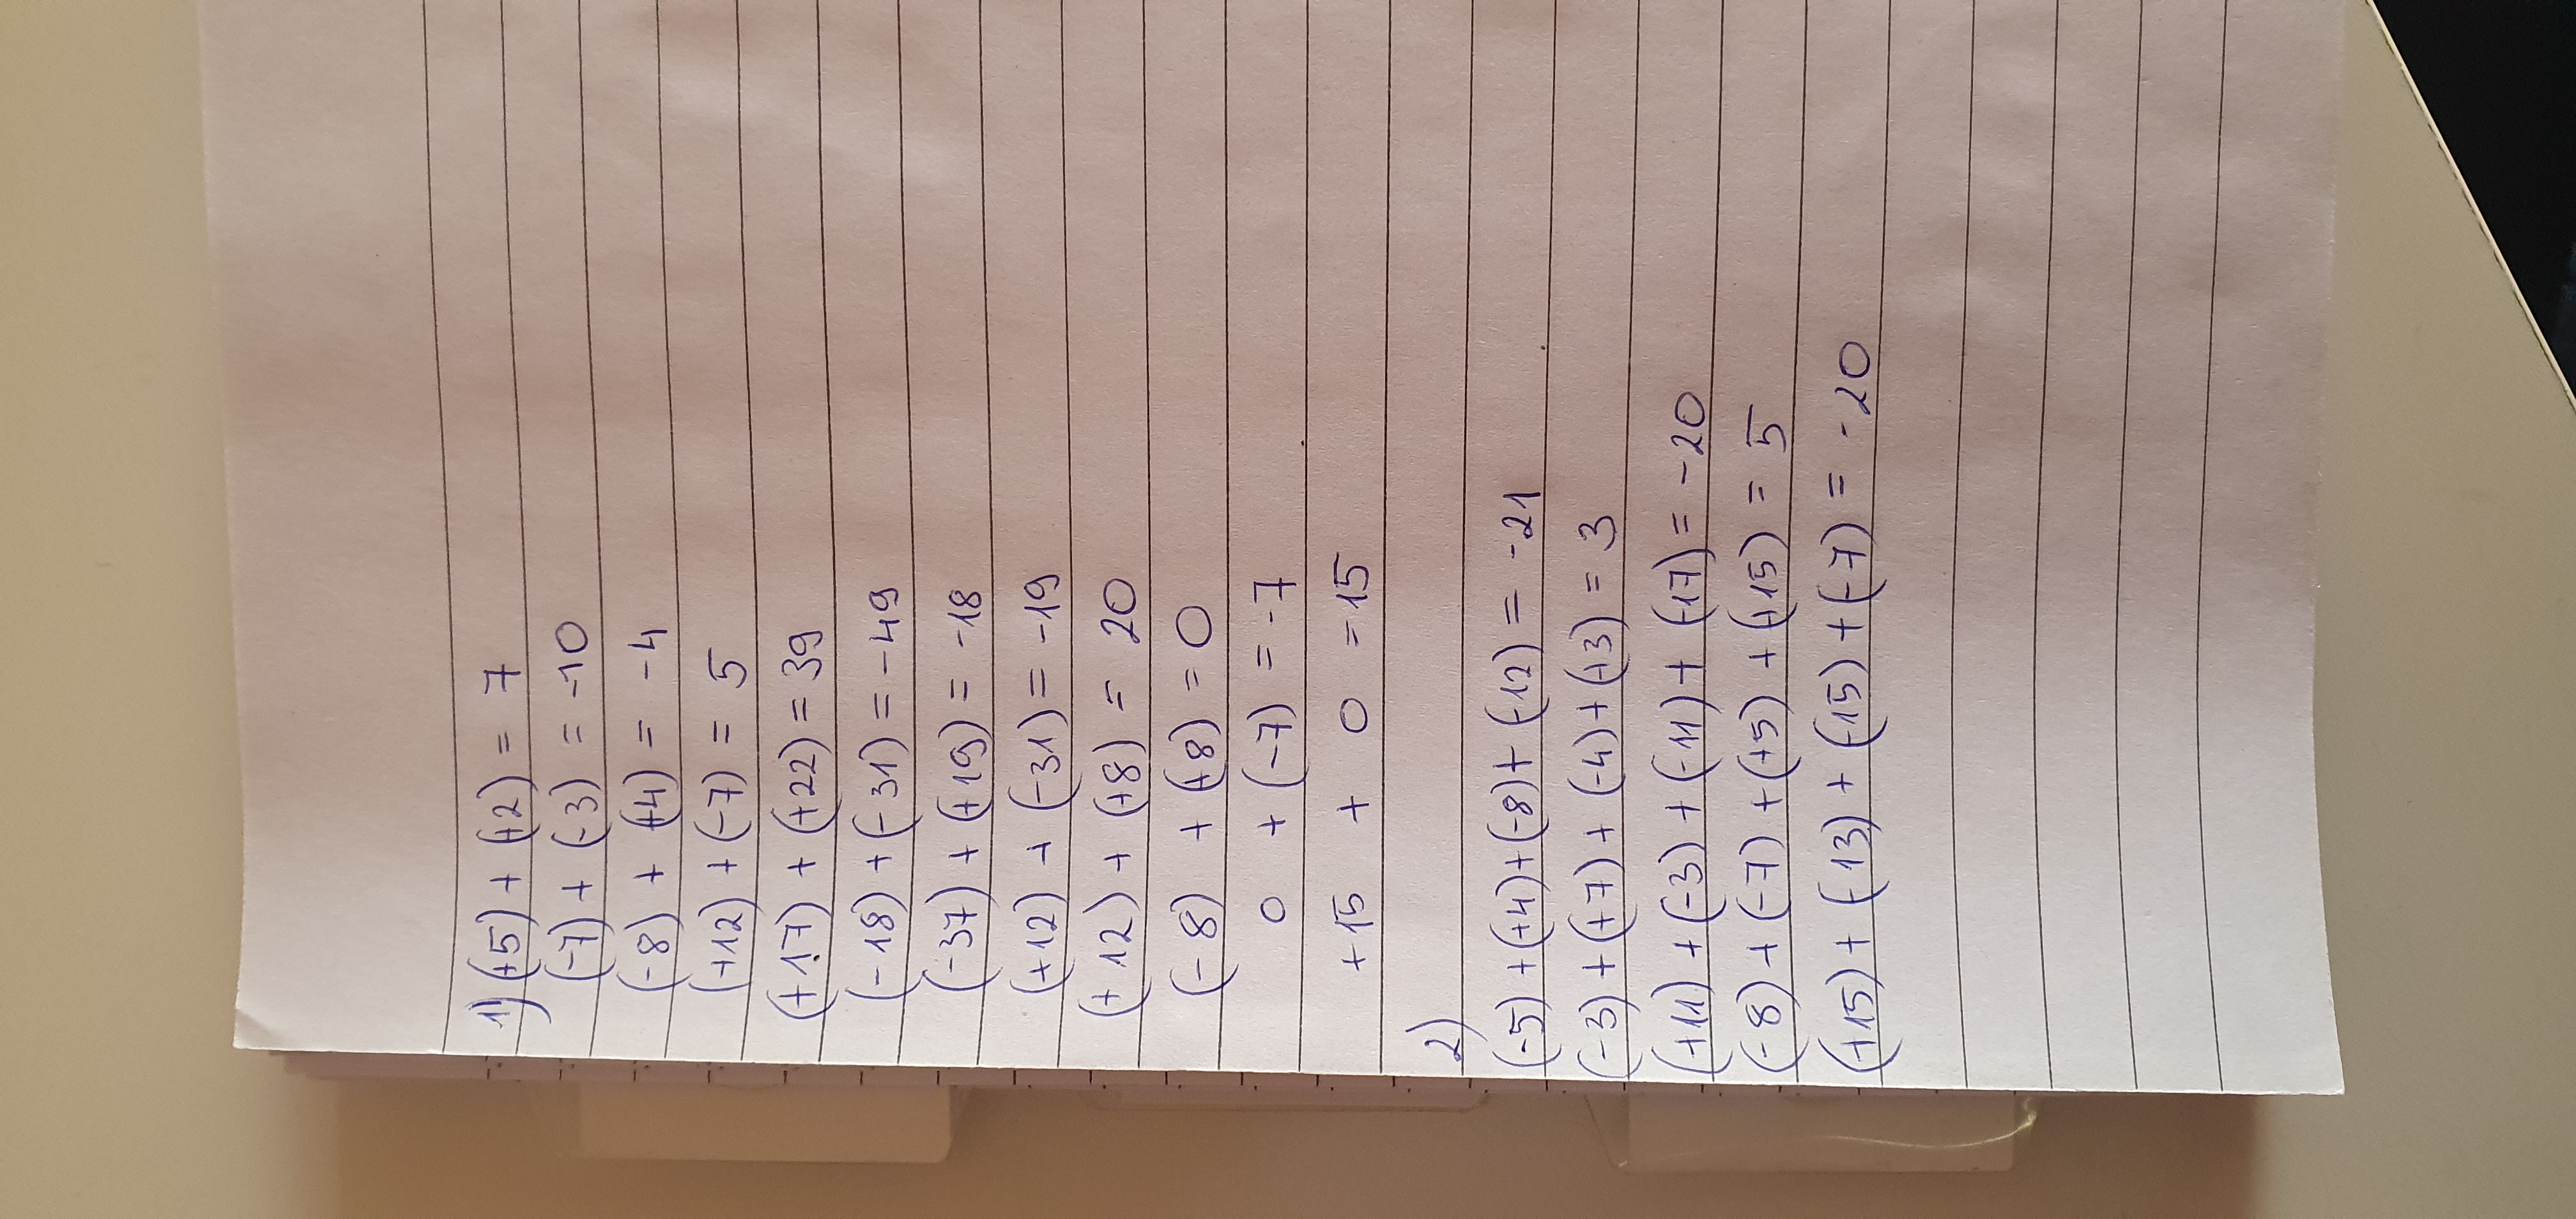 1) (+5) + (+2) = 7
(-7) + (-3) = -10
(-8) + (+4) = -4
(+12) + (-7) = 5
(+17) + (+22) = 39
(-18) + (-31) = -49
(-37) + (+19) = -18
(+12) + (-31) = -19
(+12) + (+8) = 20
(-8) + (+8) = 0
0 + (-7) = -7
+15 + 0 = 15
2)
(-5) + (+4) + (-8) + (-12) = -21
(-3) + (+7) + (-4) + (+3) = 3
(+11) + (-3) + (-11) + (-17) = -20
(-8) + (-7) + (+5) + (+15) = 5
(+15) + (-13) + (-15) + (-7) = -20